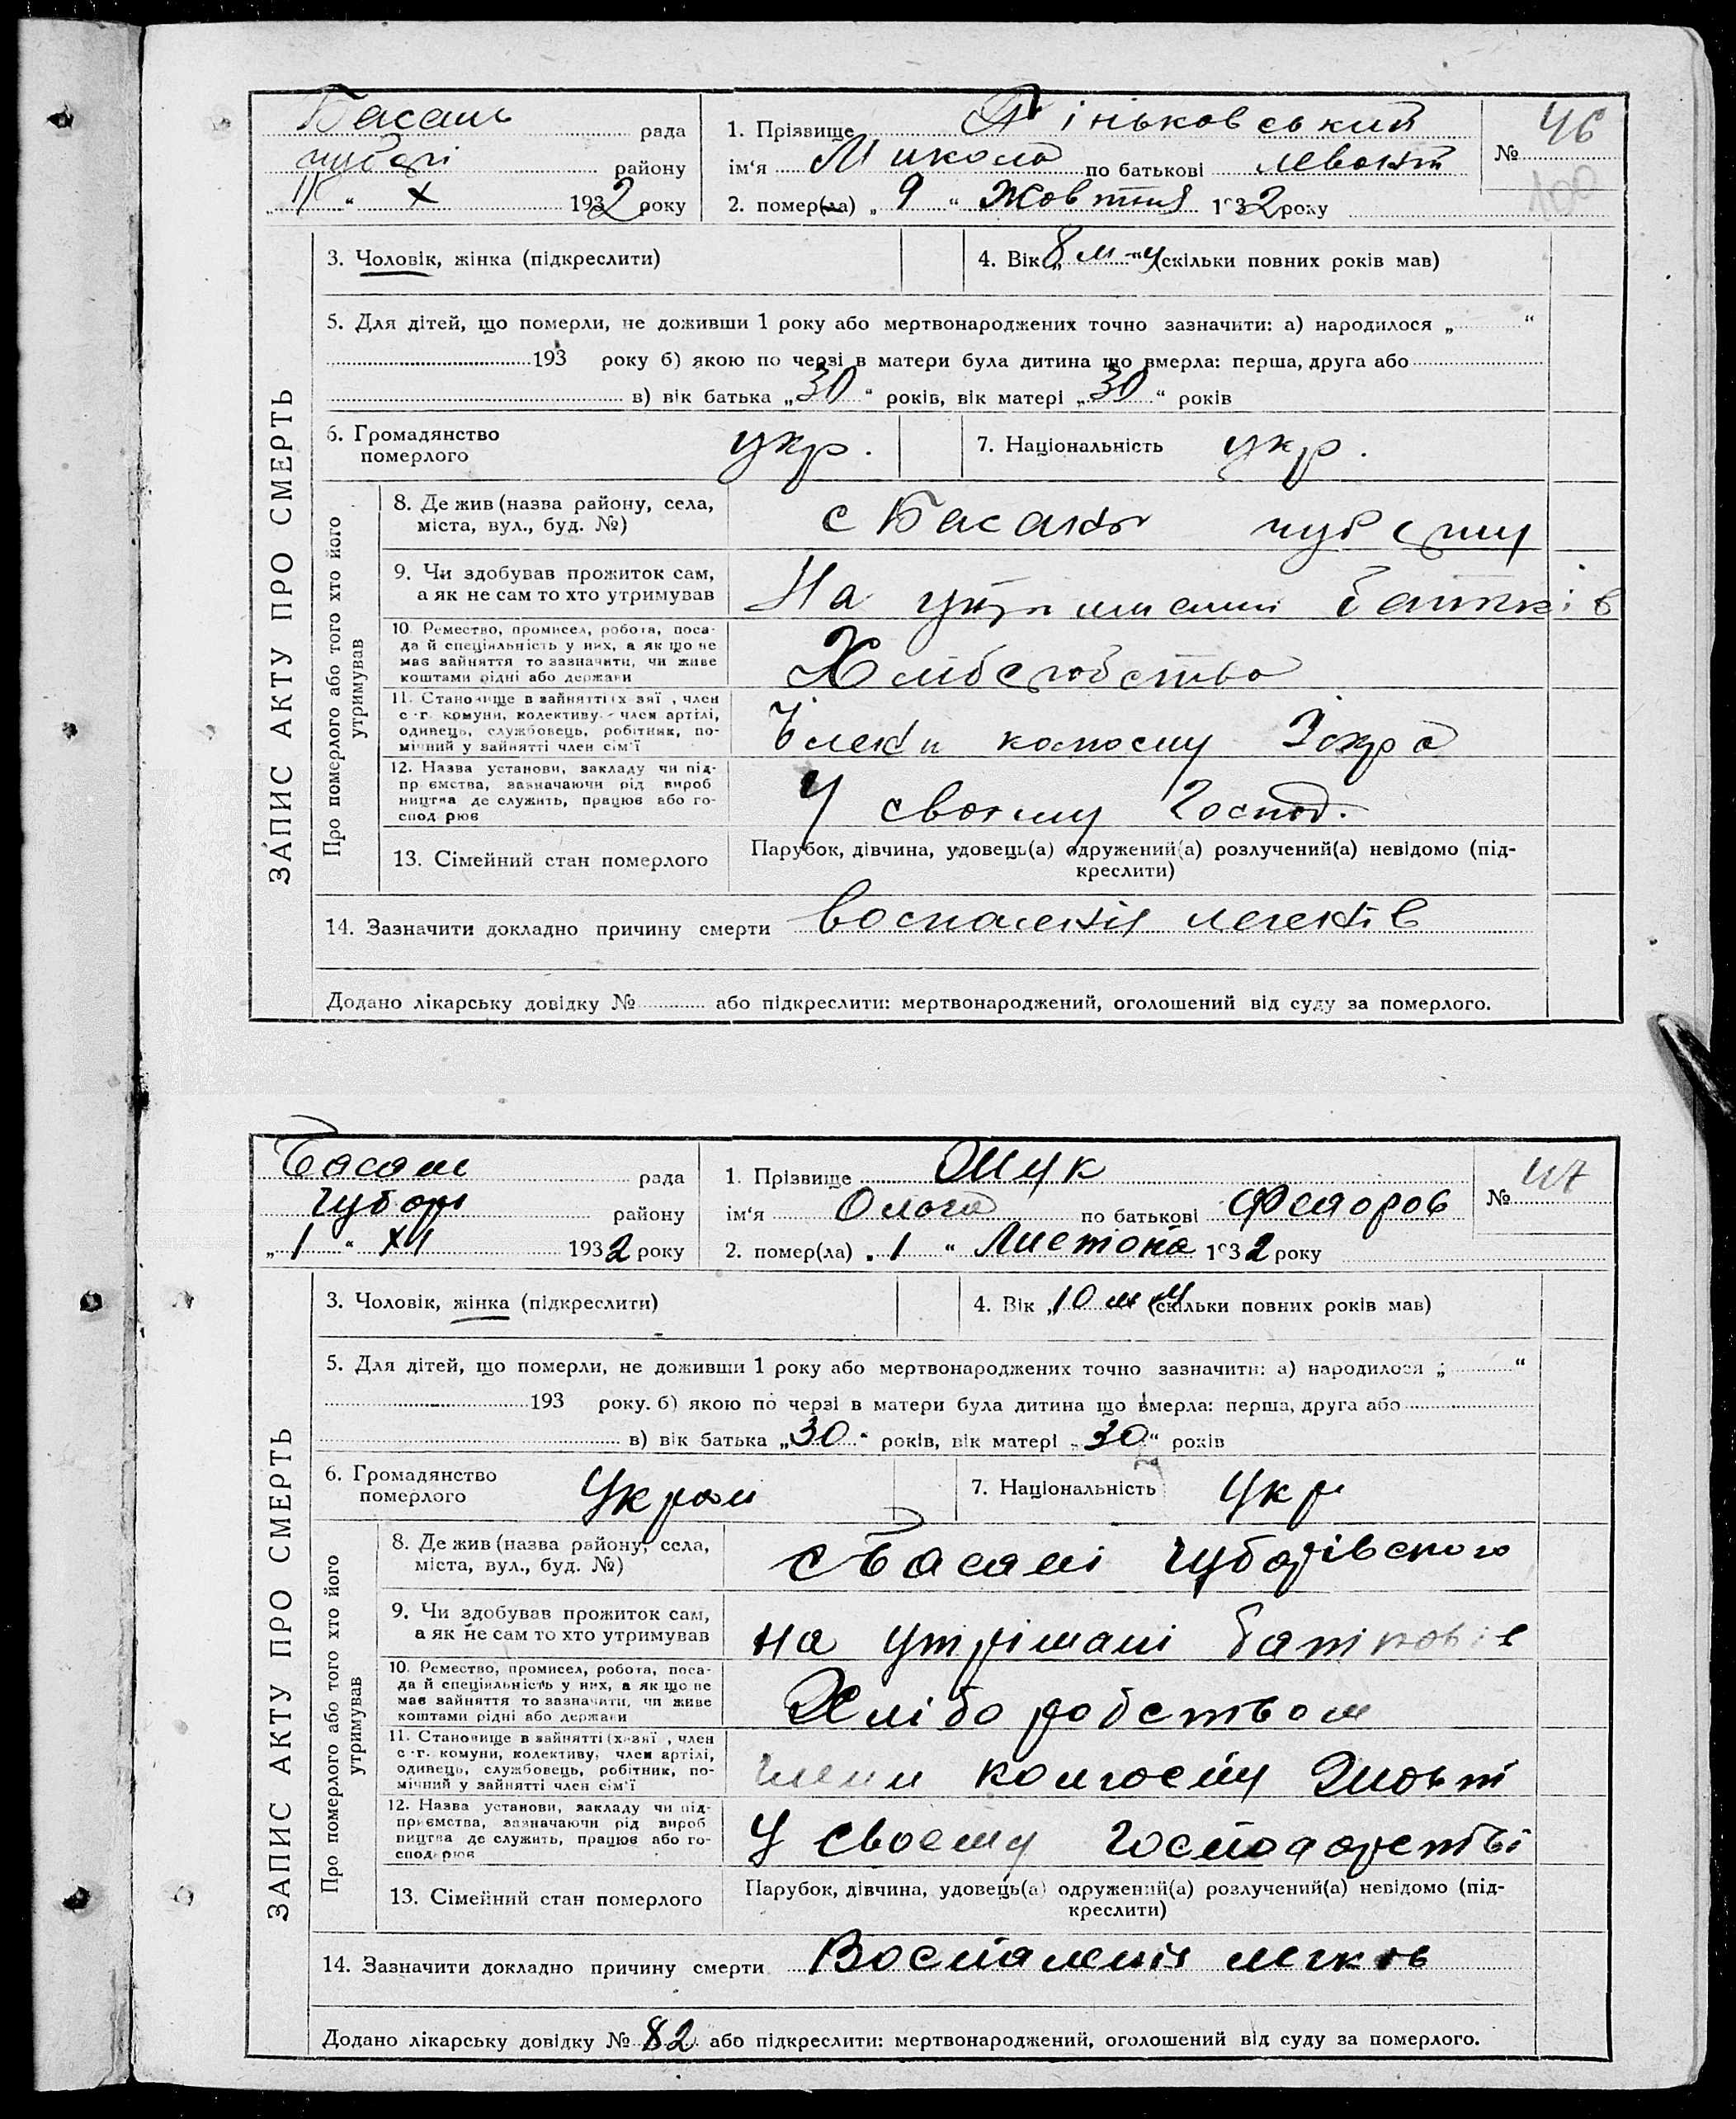 Басань рада
району
„ 11 “ X 1932 року
1. Прізвище Пiньковський
ім‘я Микола по батькові
2. помер(ла) „ 9 “ Жовтня 1932 року
№ 46
100
ЗАПИС АКТУ ПРО СМЕРТЬ
3. Чоловік, жінка (підкреслити)
4. Вік „ 8 м-ц (скільки повних років мав)
5. Для дітей, що померли, не доживши 1 року або мертвонароджених точно зазначити: а) народилося „ “
193 року б) якою по черзі в матери була дитина що вмерла: перша, друга або
в) вік батька „ 30 “ років, вік матері „ 30 “ років
6. Громадянство померлого укр.
7. Національність укр.
Про померлого або того хто його утримував
8. Де жив (назва району, села,
міста, вул., буд. №)
с Басань
9. Чи здобував прожиток сам,
а як не сам то хто утримував
На утриманні батьків
10. Ремество, промисел, робота, поса-
да й спеціяльність у них, а як що не
має зайняття то зазначити, чи живе
коштами рідні або держави
Хліборобство
11. Становище в зайнятті (х-зяї , член
с-г. комуни, колективу, член артілі,
одинець, службовець, робітник, по-
мічний у зайнятті член сім‘ї
колгоспу
12. Назва установи, закладу чи під-
приємства, зазначаючи рід вироб
ництва де служить, працює або го-
сподарює
У своєму Господ.
13. Сімейний стан померлого
Парубок, дівчина, удовець(а) одружений(а) розлучений(а) невідомо (під-
креслити)
14. Зазначити докладно причину смерти воспаленія легенів
Додано лікарську довідку № або підкреслити: мертвонароджений, оголошений від суду за померлого.
Басань рада
Чубарі району
„ 1 “ XI 1932 року
1. Прізвище
ім‘я Ольга по батькові Федоров
2. помер(ла) „ 1 “ Листопа 1932 року
№ 47
ЗАПИС АКТУ ПРО СМЕРТЬ
3. Чоловік, жінка (підкреслити)
4. Вік „ 10 м ц (скільки повних років мав)
5. Для дітей, що померли, не доживши 1 року або мертвонароджених точно зазначити: а) народилося „ “
193 року. б) якою по черзі в матери була дитина що вмерла: перша, друга або
в) вік батька „ 30 “ років, вік матері „ 30 “ років
6. Громадянство померлого Украи
7. Національність Укр
Про померлого або того хто його утримував
8. Де жив (назва району, села,
міста, вул., буд. №)
с Басані Чубарівского
9. Чи здобував прожиток сам,
а як не сам то хто утримував
на утрімані батьковів
10. Ремество, промисел, робота, поса-
да й спеціяльність у них, а як що не
має зайняття то зазначити, чи живе
коштами рідні або держави
Хліборобством
11. Становище в зайнятті (х-зяї , член
с-г. комуни, колективу, член артілі,
одинець, службовець, робітник, по-
мічний у зайнятті член сім‘ї
колгоспу
12. Назва установи, закладу чи під-
приємства, зазначаючи рід вироб
ництва де служить, працює або го-
сподарює
У своєму господарстві
13. Сімейний стан померлого
Парубок, дівчина, удовець(а) одружений(а) розлучений(а) невідомо (під-
креслити)
14. Зазначити докладно причину смерти Воспаленія легков
Додано лікарську довідку № 82 або підкреслити: мертвонароджений, оголошений від суду за померлого.